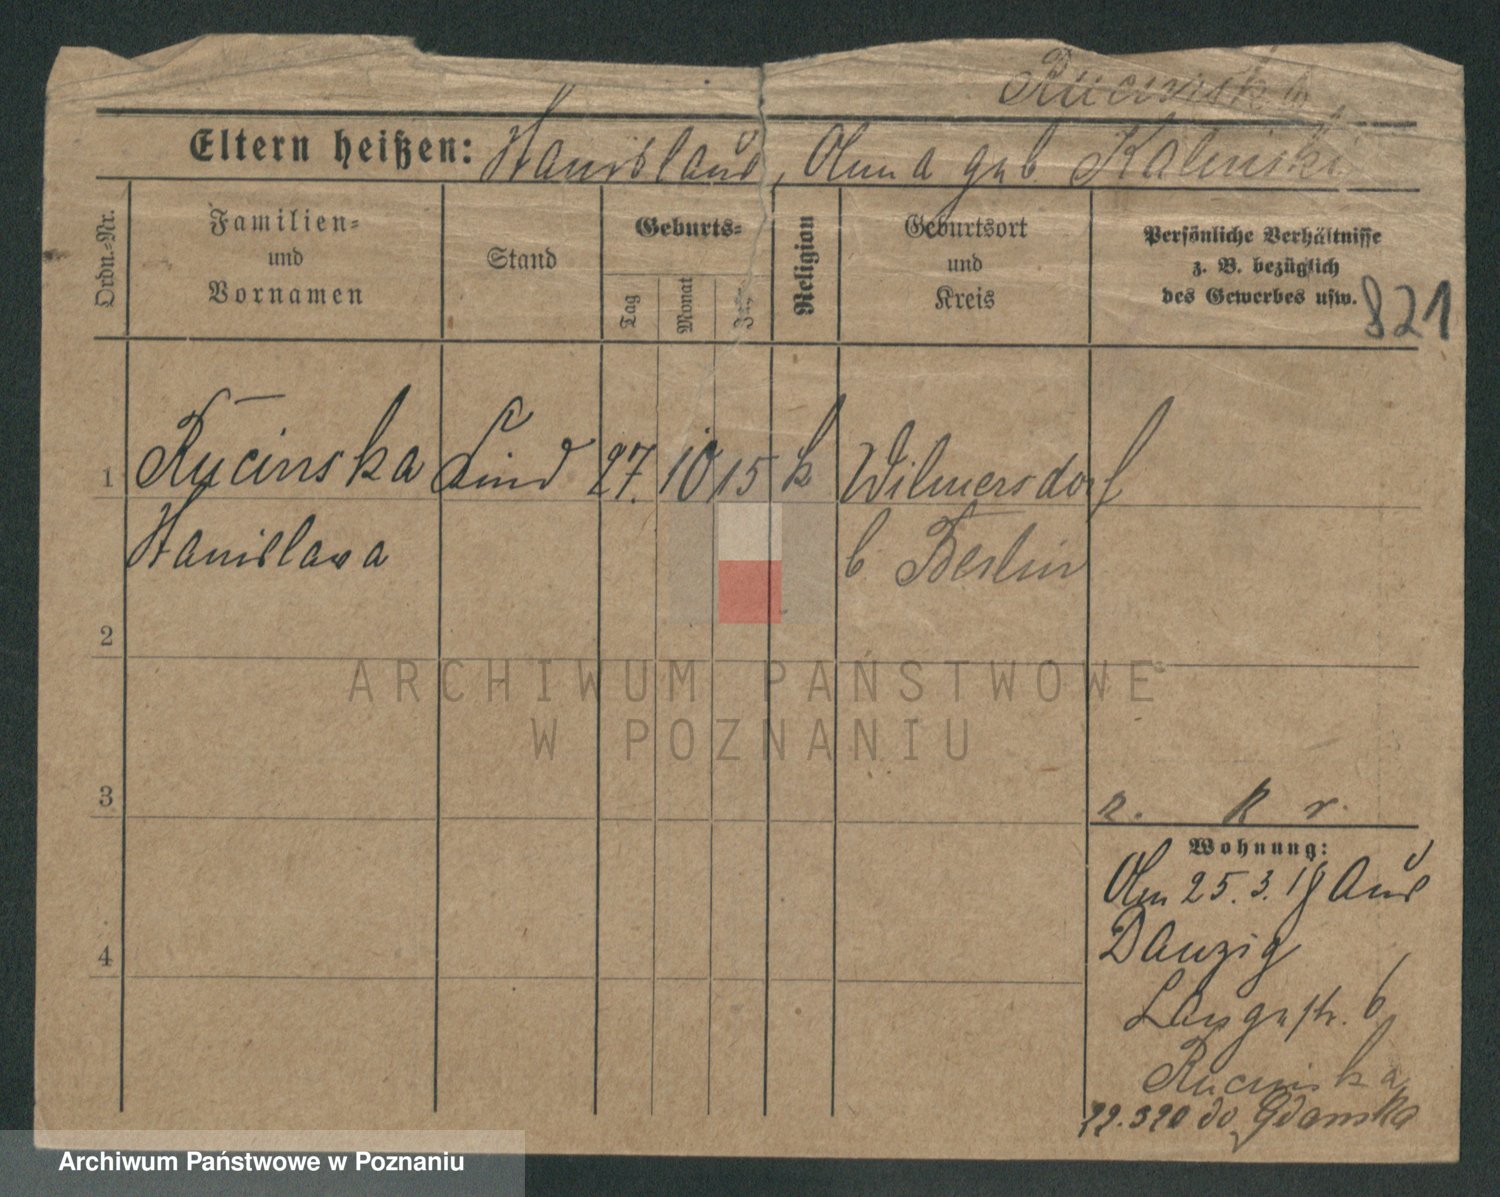 Rucinska
Eltern heißen: Stanislaus, Anna geb. Kalinski
Ordn.-Nr.
Familien- und Vornamen
Stand
Geburts-
Tag
Monat
Jahr
Religion
Geburtsort und Kreis
Persönliche Verhältnisse
z. B. bezüglich
des Gewerbes usw.
821
1 Rucinska Kind 27. 10 15 k Wilmersdorf
Stanislava b Berlin
2
3
4
r. k r.
Wohnung:
Am 25. 3. 18 aus
Danzig
Langestr. 6
Rucinska
do Gdanska
ARCHIWUM PAŃSTWOWE
W POZNANIU
Archiwum Państwowe w Poznaniu